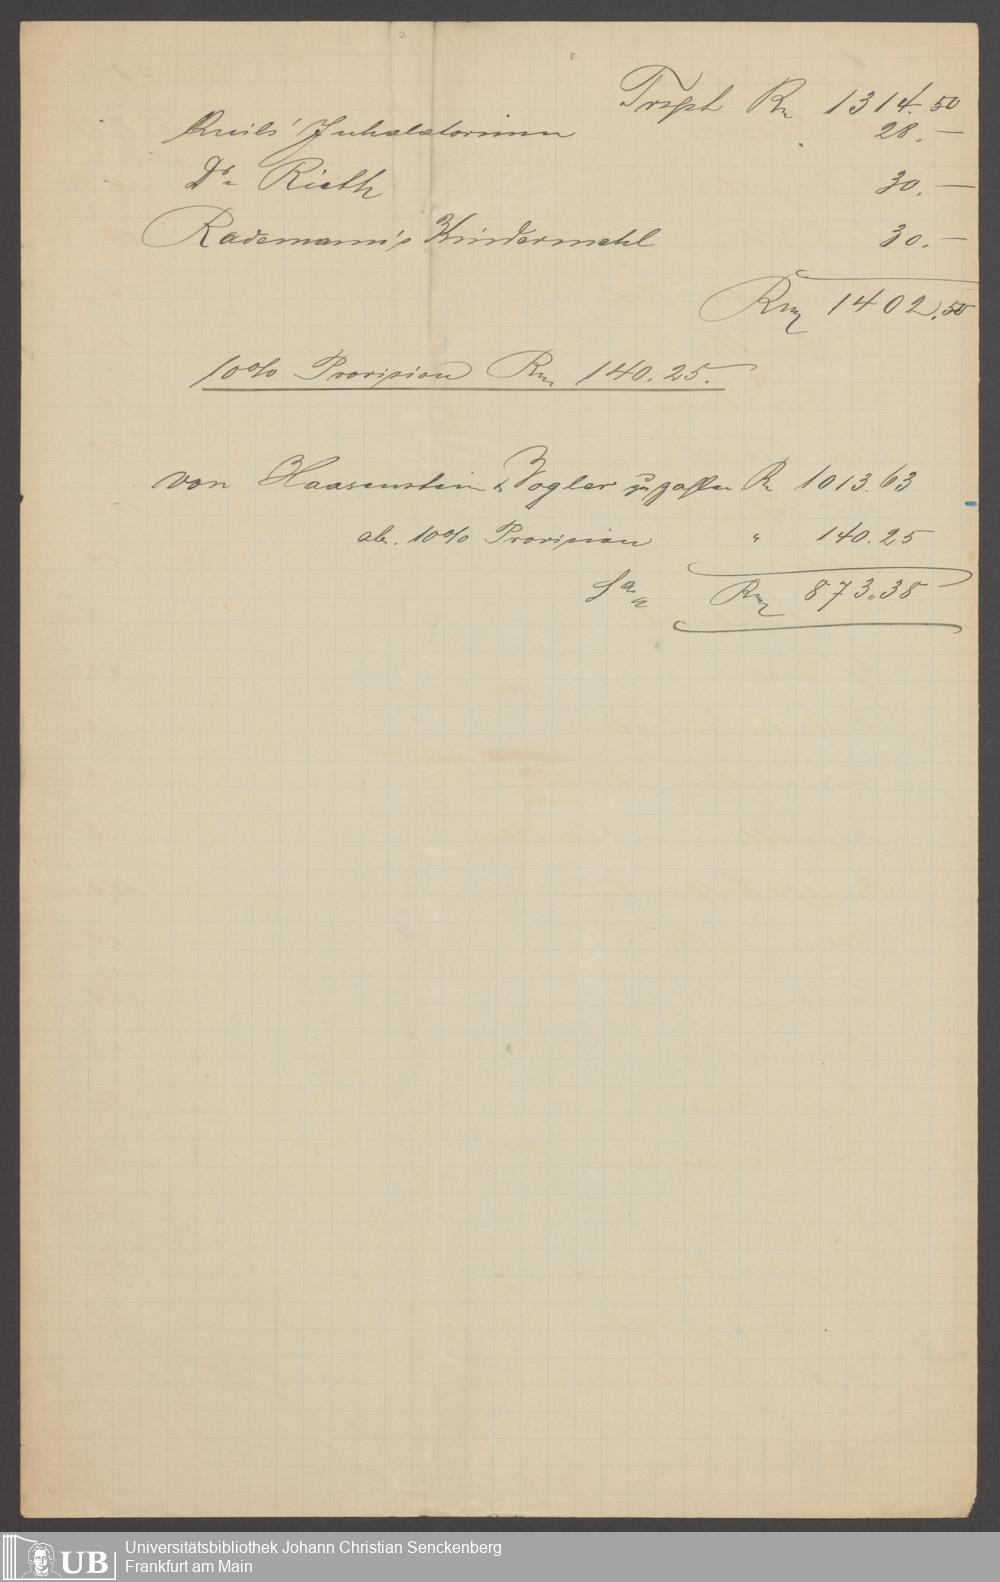 Trspt Rm 1314.50
Quils' Inhalatorium 28.—
Dr. Rieth 30.—
Rademann's Kindermehl 30.—
Rm 1402,50
10% Provision Rm 140.25.
von Haasenstein & Vogler zu zahlen Rm 1013.63
ab. 10% Provision " 140.25
Sa. Rm 873.38
UB Universitätsbibliothek Johann Christian Senckenberg
Frankfurt am Main